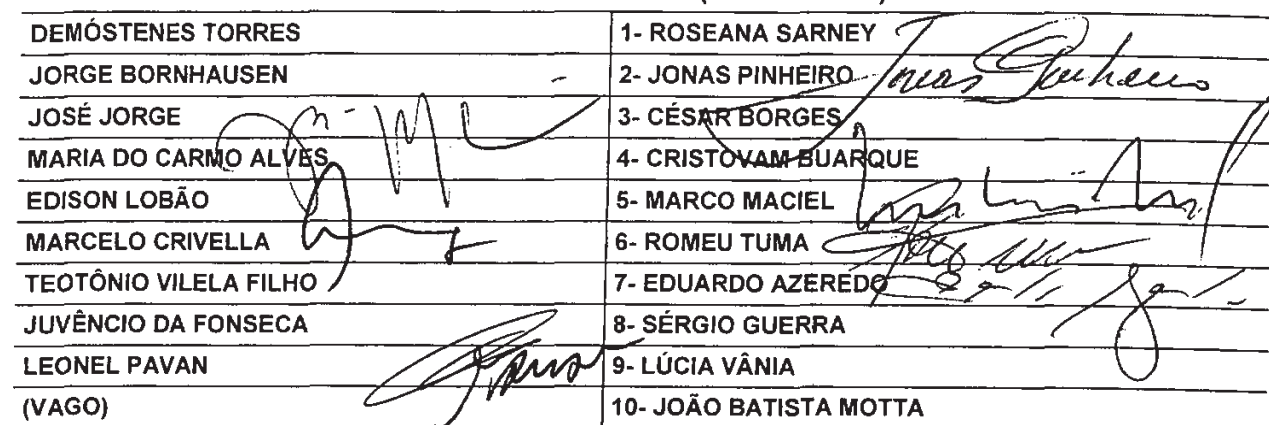 DEMÓSTENES TORRES 1- ROSEANA SARNEY
JORGE BORNHAUSEN 2- JONAS PINHEIRO Jonas Pinheiro
JOSÉ JORGE 3- CÉSAR BORGES
MARIA DO CARMO ALVES 4- CRISTOVAM BUARQUE
EDISON LOBÃO 5- MARCO MACIEL
MARCELO CRIVELLA 6- ROMEU TUMA
TEOTÔNIO VILELA FILHO 7- EDUARDO AZEREDO
JUVÊNCIO DA FONSECA 8- SÉRGIO GUERRA
LEONEL PAVAN 9- LÚCIA VÂNIA
(VAGO) 10- JOÃO BATISTA MOTTA